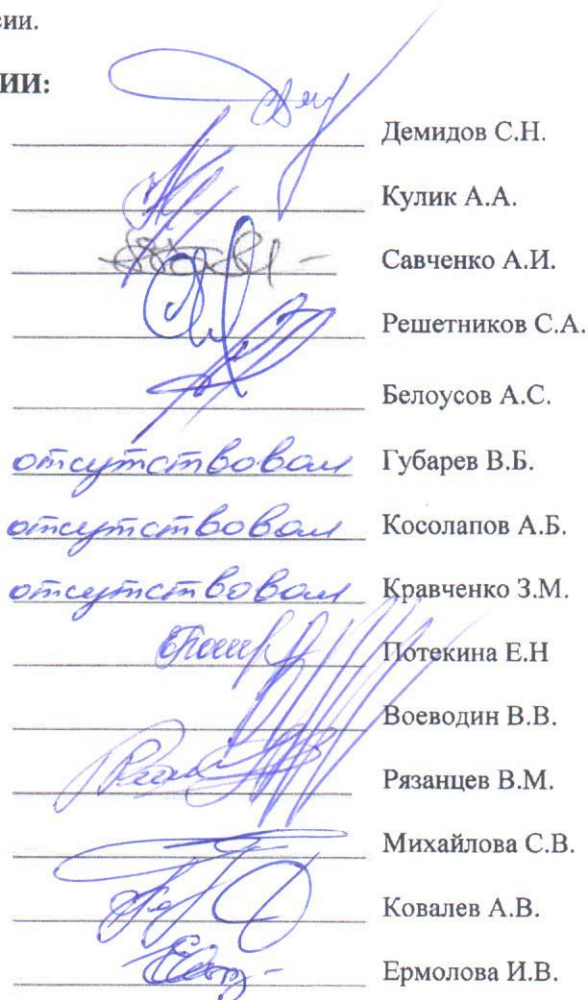 сии.
ИИ:
Демидов С.Н.
Кулик А.А.
Савченко А.И.
Решетников С.А.
Белоусов А.С.
отсутствовал Губарев В.Б.
отсутствовал Косолапов А.Б.
отсутствовал Кравченко З.М.
Потекина Е.Н
Воеводин В.В.
Рязанцев В.М.
Михайлова С.В.
Ковалев А.В.
Ермолова И.В.